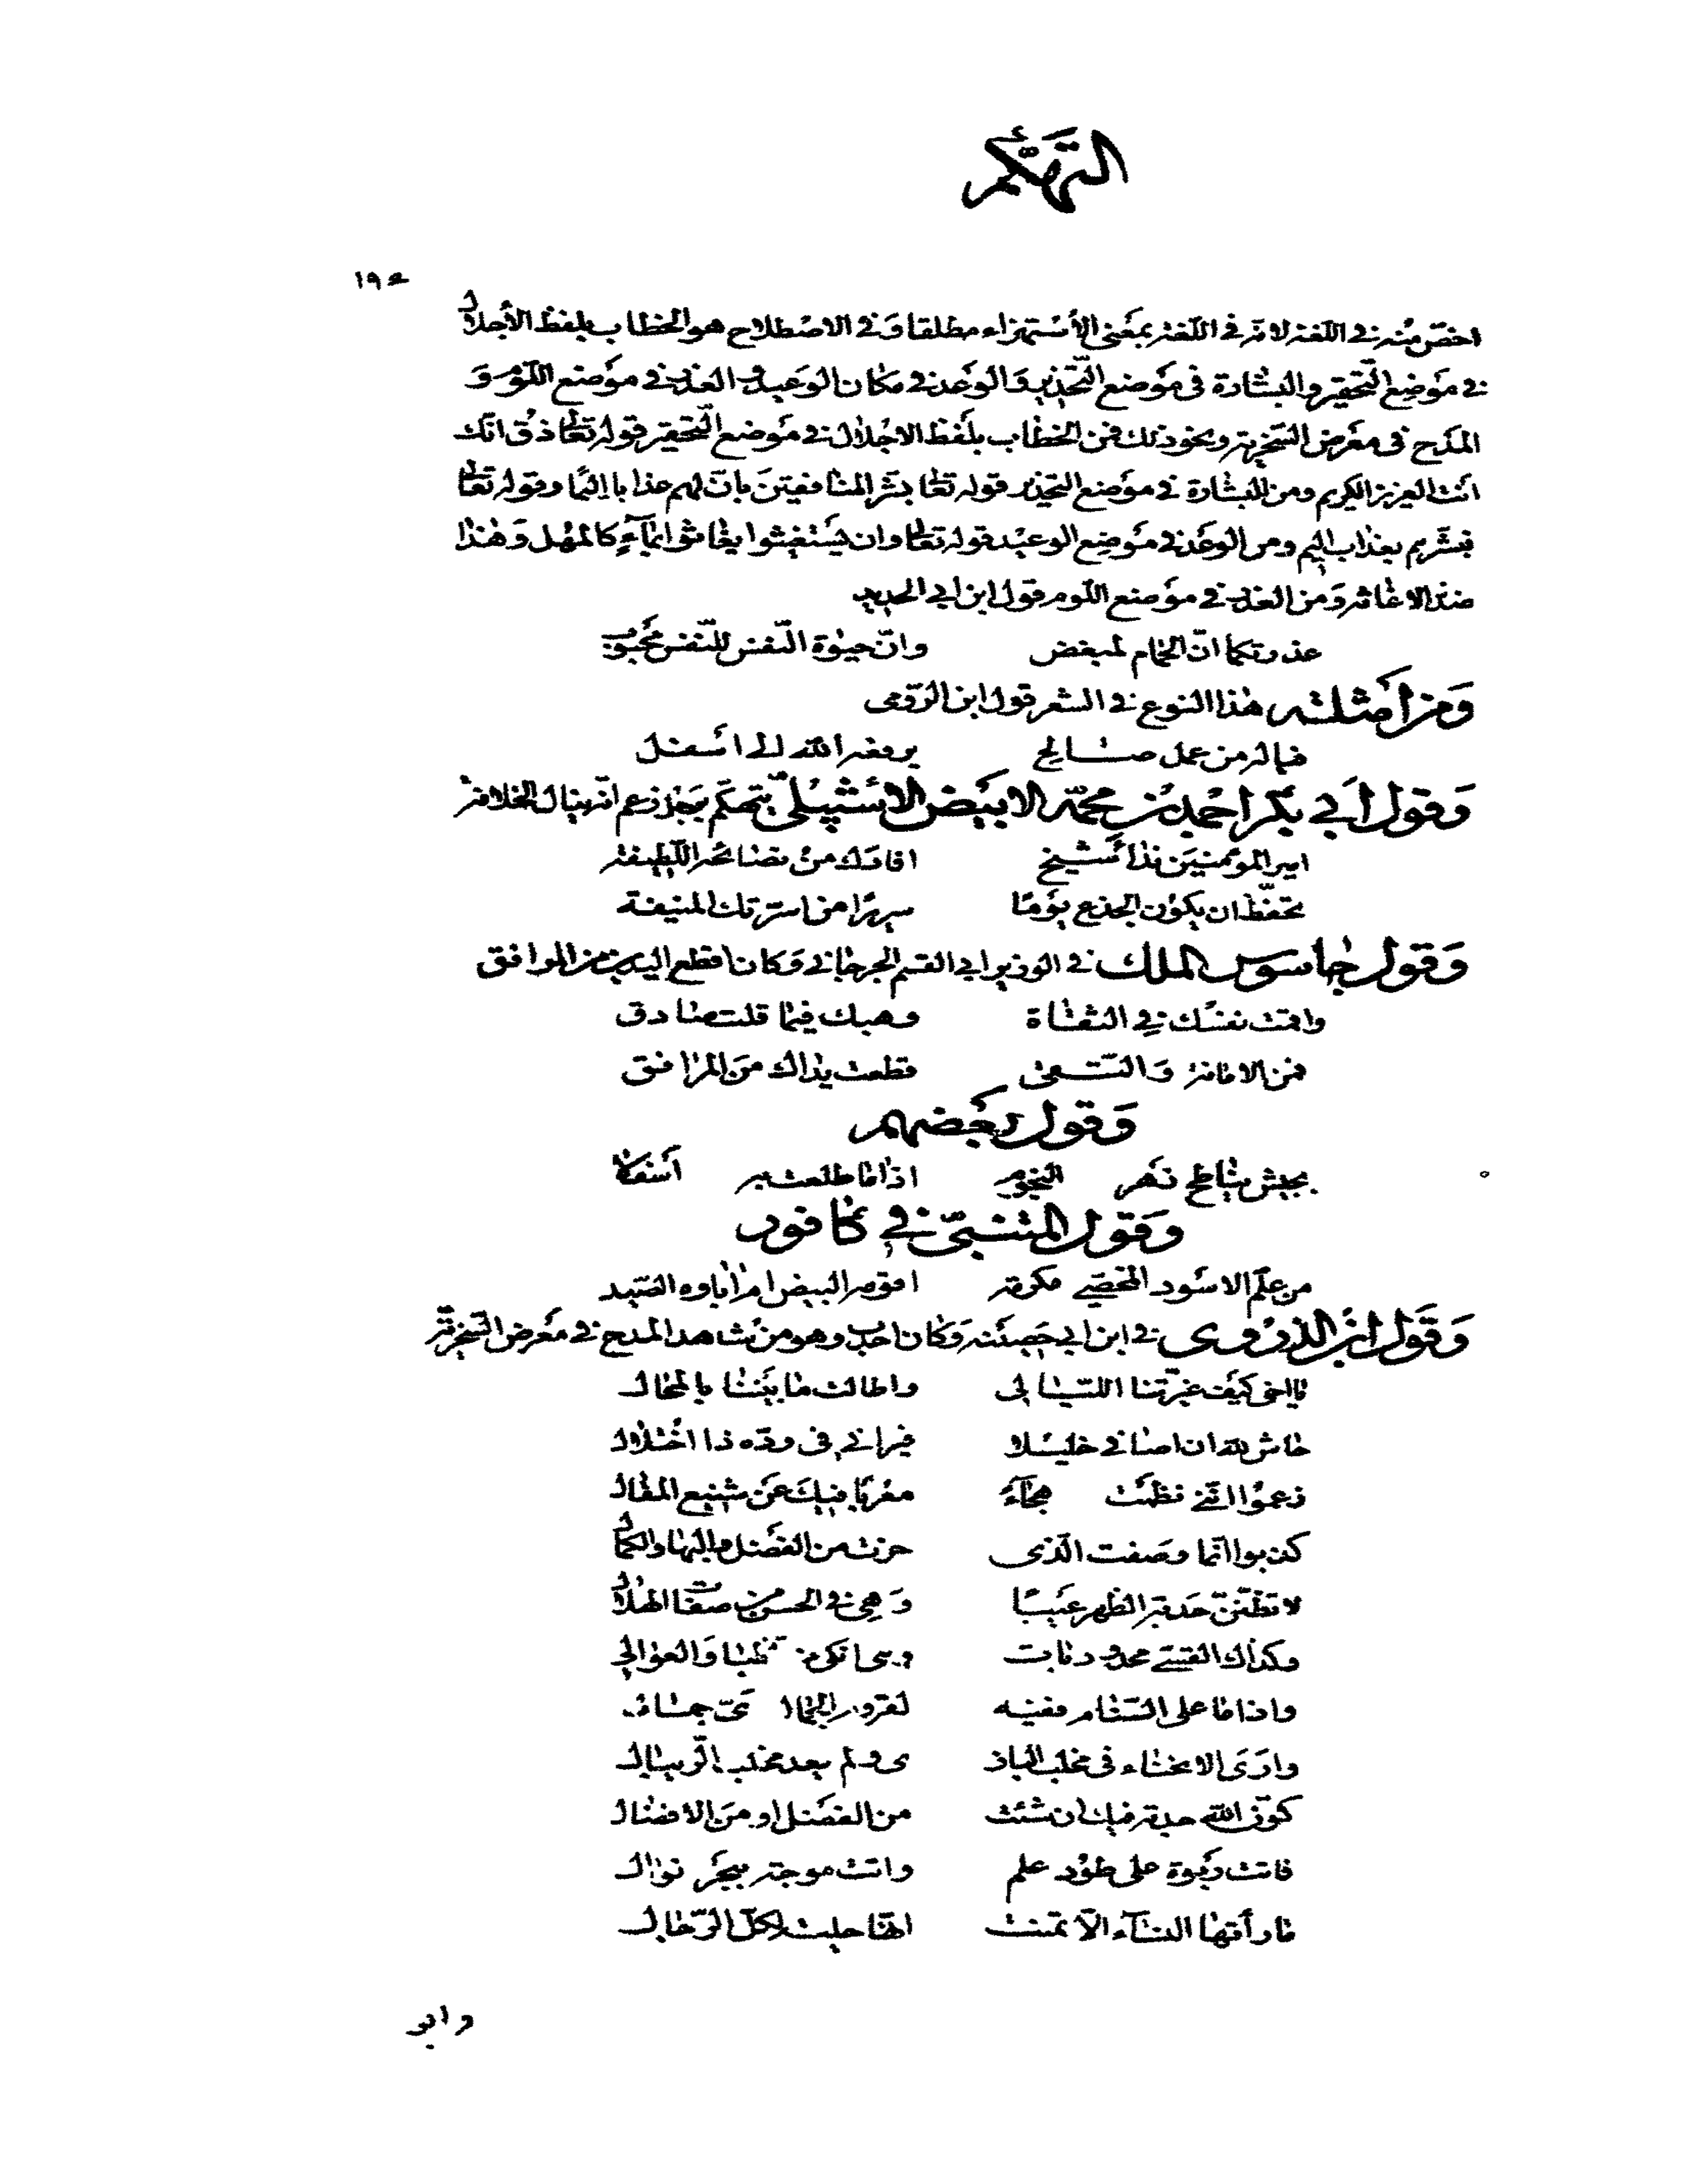 التهكّم
١٩٤
اخصّ منه في اللغة لانّه في اللغة بمعنى الأستهزاء مطلقا وَفي الاصْطلاح هو الخطاب بلفظ الأجلال
في مَوضِع التّحقير والبشارة في مَوضع التّحذير وَالوَعد في مكان الوَعيد والعذر في موَضع اللّوم وَ
المدَح في معَرض السّخرية ونحو ذلك فمن الخطاب بلَفظ الاجْلال في مَوضع التّحقير قوله تعالى ذق انّك
انت العزيز الكريم ومن البشارة في موَضع التحذير قوله تعالى بشّر المنافقينَ بانّ لهم عذابا اليمًا وقوله تعالى
فبشّرهم بعذاب اليم ومن الوَعد في مَوضِع الوعيْد قوله تعالى وان يسَتغيثوا يغاثوا بمآءٍ كالمهْل وَهذا
ضدّ الاغاثة وَمن العذر في موَضع اللّوم قول ابن ابي الحديد
عذرتكما انّ الحمام لمبغض وانّ حيوة النّفس للنّفس محَبوب
وَمن أمثلته هذا النوع في الشعر قول ابن الرّومى
فياله من عمل صالح يرفعه اللّه الى اسَفل
وَقول أبي بكَر احْمد بْن محمّد الابيَض الاشبيْلىّ يتهكّم برَجل زعم انّه ينال الخلافة
امير المؤمنيَن نداء شيخ افادَك منْ نصائحَه اللّطيفة
تحفّظ ان يكوُن الجذع يوَمًا سريرًا من اسرّتك المنيفة
وَقول جاسوس الملك في الوزير ابي القسم الجرجاني وَكان اقطع اليدين من المرافق
واقمت نفسَك في الثقاة وهبك فيما قلت صادق
فمن الامانة وَالتّقى قطعت يداك منَ المرافق
وَقول بعَضهم
بجيش شاطح نهر النجوم اذا ما طلعت به أسَفلا
وَقول المتنبّىّ في كافور
من علّم الاسَود المخصيّ مكرمة اقومه البيض ام اباوه الصّيد
وَقَول ابْن الذروى في ابن ابي حَصينَة وَكان احدب وهو من شاهد المدح في معَرض السّخريّة
يا اخى كيَف غيّرتنا الليالي واطالت ما بيَننا بالمحال
حاش للّه ان اصافى خليلا فيرانى في ودّه ذا اختلال
زعموُا انّنى نظمتَ هجآءً معْربا فيكَ عنَ شنيع المقال
كذبوا انّما وصَفت الّذى حزت من الفضَل والبها والكمال
لا تظنّنّ حَدبة الظهر عيَبًا وَهى في الحسن من صفات الهلال
وكذاك القسىّ محدودبات وهى انكى من الظبا وَالعوالي
واذا ما على السّنام ففيه لقروم الجمال اىّ جمال
وارَى الانحناء في مخلب الباز ى ولم يعد مخلب الرّيبال
كوّن اللّه حدبة فيك ان شئت من الفضَل او منَ الافضال
فاتت ربَوة على طوْد علم واتت موجة ببحرَ نوال
ما رأتها النسآء الّا تمنّت انّها حليت لكلّ الرّجال
وابو